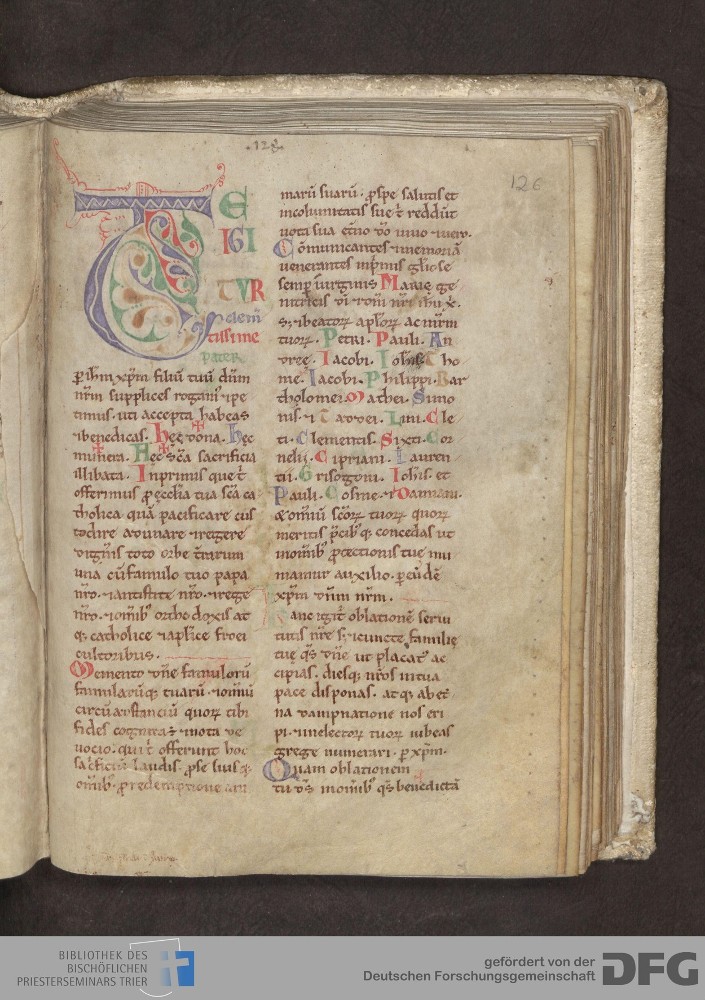 .128.
126
TE
IGI
TVR
clem̄
tissime
pater
p ih̄m xp̄m filiū tuū dn̄m
nr̄m supplices rogam᷒ ⁊pe
timus. uti accepta habeas
⁊benedicas. Hec dona. Hec
munera. Hec sc̄a sacrificia
illibata. Inprimis que t̄
offerimus p ecclīa tua sc̄a ca
tholica quā pacificare cus
todire adunare ⁊regere
digneris toto orbe t̄rarum
una cū famulo tuo papa
nr̄o. ⁊antistite nr̄o. ⁊rege
nr̄o. ⁊omīb᷒ orthodoxis at
q; catholice ⁊aplīce fidei
cultoribus.
Memento dn̄e famulorū
famularūq; tuarū. ⁊omiū
circū adstanciū quoꝝ tibi
fides cognita ÷ ⁊nota de
uocio. qui t̄ offerunt hoc
sac̄ficiū laudis. p se suisq;
omīb᷒. p redemptione ani
marū suarū. p spe salutis et
incolumitatis sue t̄ reddūt
uota sua et̄no dō uiuo ⁊uero.
Cōmunicantes ⁊memoriā
uenerantes inp̄mis gl̄iose
semp uirginis Marie ge
nitricis dī ⁊dn̄i nr̄i ih̄u x̄.
S; ⁊beatoꝝ apl̄oꝝ ac mr̄m
tuoꝝ. Petri. Pauli. An
dree. Iacobi. Ioh̄is. Tho
me. Iacobi. Philippi. Bar
tholomei. Mathei. Simo
nis. ⁊ Taddei. Lini. Cle
ti. Clementis. Sixti. Cor
nelii. Cipriani. Lauren
tii. Grisogoni. Ioh̄is. et
Pauli. Cosme. ⁊Damiani.
&omiū sc̄oꝝ tuoꝝ quoꝝ
meritis p̄cib᷒q; concedas ut
inomīb᷒ p̄tectionis tue mu
niamur auxilio. p eūdē
xp̄m dn̄m nr̄m.
Hanc igit̄ oblationē serui
tutis nr̄e s; ⁊cuncte familie
tue qs̄ dn̄e ut placat᷒ ac
cipias. diesq; nr̄os intua
pace disponas. atq; ab et̄
na dampnatione nos eri
pi. ⁊inelectoꝝ tuoꝝ iubeas
grege numerari. p xp̄m.
Quam oblationem
tu dš inomīb᷒ qs̄ benedictā
BIBLIOTHEK DES
BISCHÖFLICHEN
PRIESTERSEMINARS TRIER
gefördert von der
Deutschen Forschungsgemeinschaft
DFG